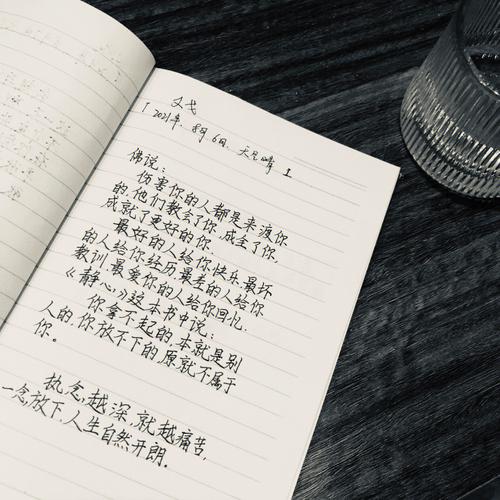 文戈
「2021年. 8月6日. 天气晴」
佛说:
伤害你的人都是来渡你
的.他们教会了你.成全了你.
成就了更好的你.
最好的人给你快乐.最坏
的人给你经历最差的人给你
教训.最爱你的人给你回忆.
《静心》这本书中说:
你拿不起的本就是别
人的.你放不下的原就不属于
你。
执念,越深,就越痛苦,
一念放下,人生自然开朗.